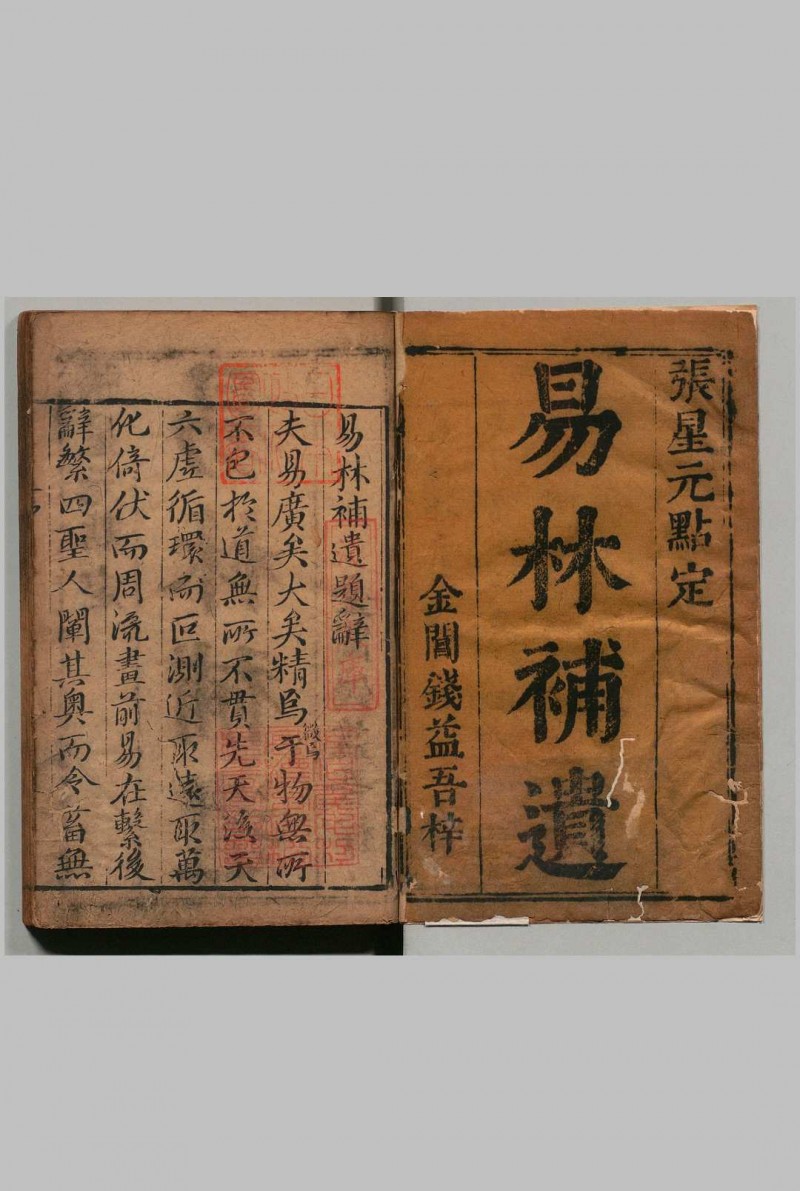 張星元點定
易林補遺
金閶錢益吾梓
易林補遺題辭
夫易廣矣大矣精焉微焉于物無所
不包於道無所不貫先天後天
六虛循環而叵測近取遠取萬
化倚伏而周流畫前易在繫後
辭繁四聖人闡其奧而令蓄無